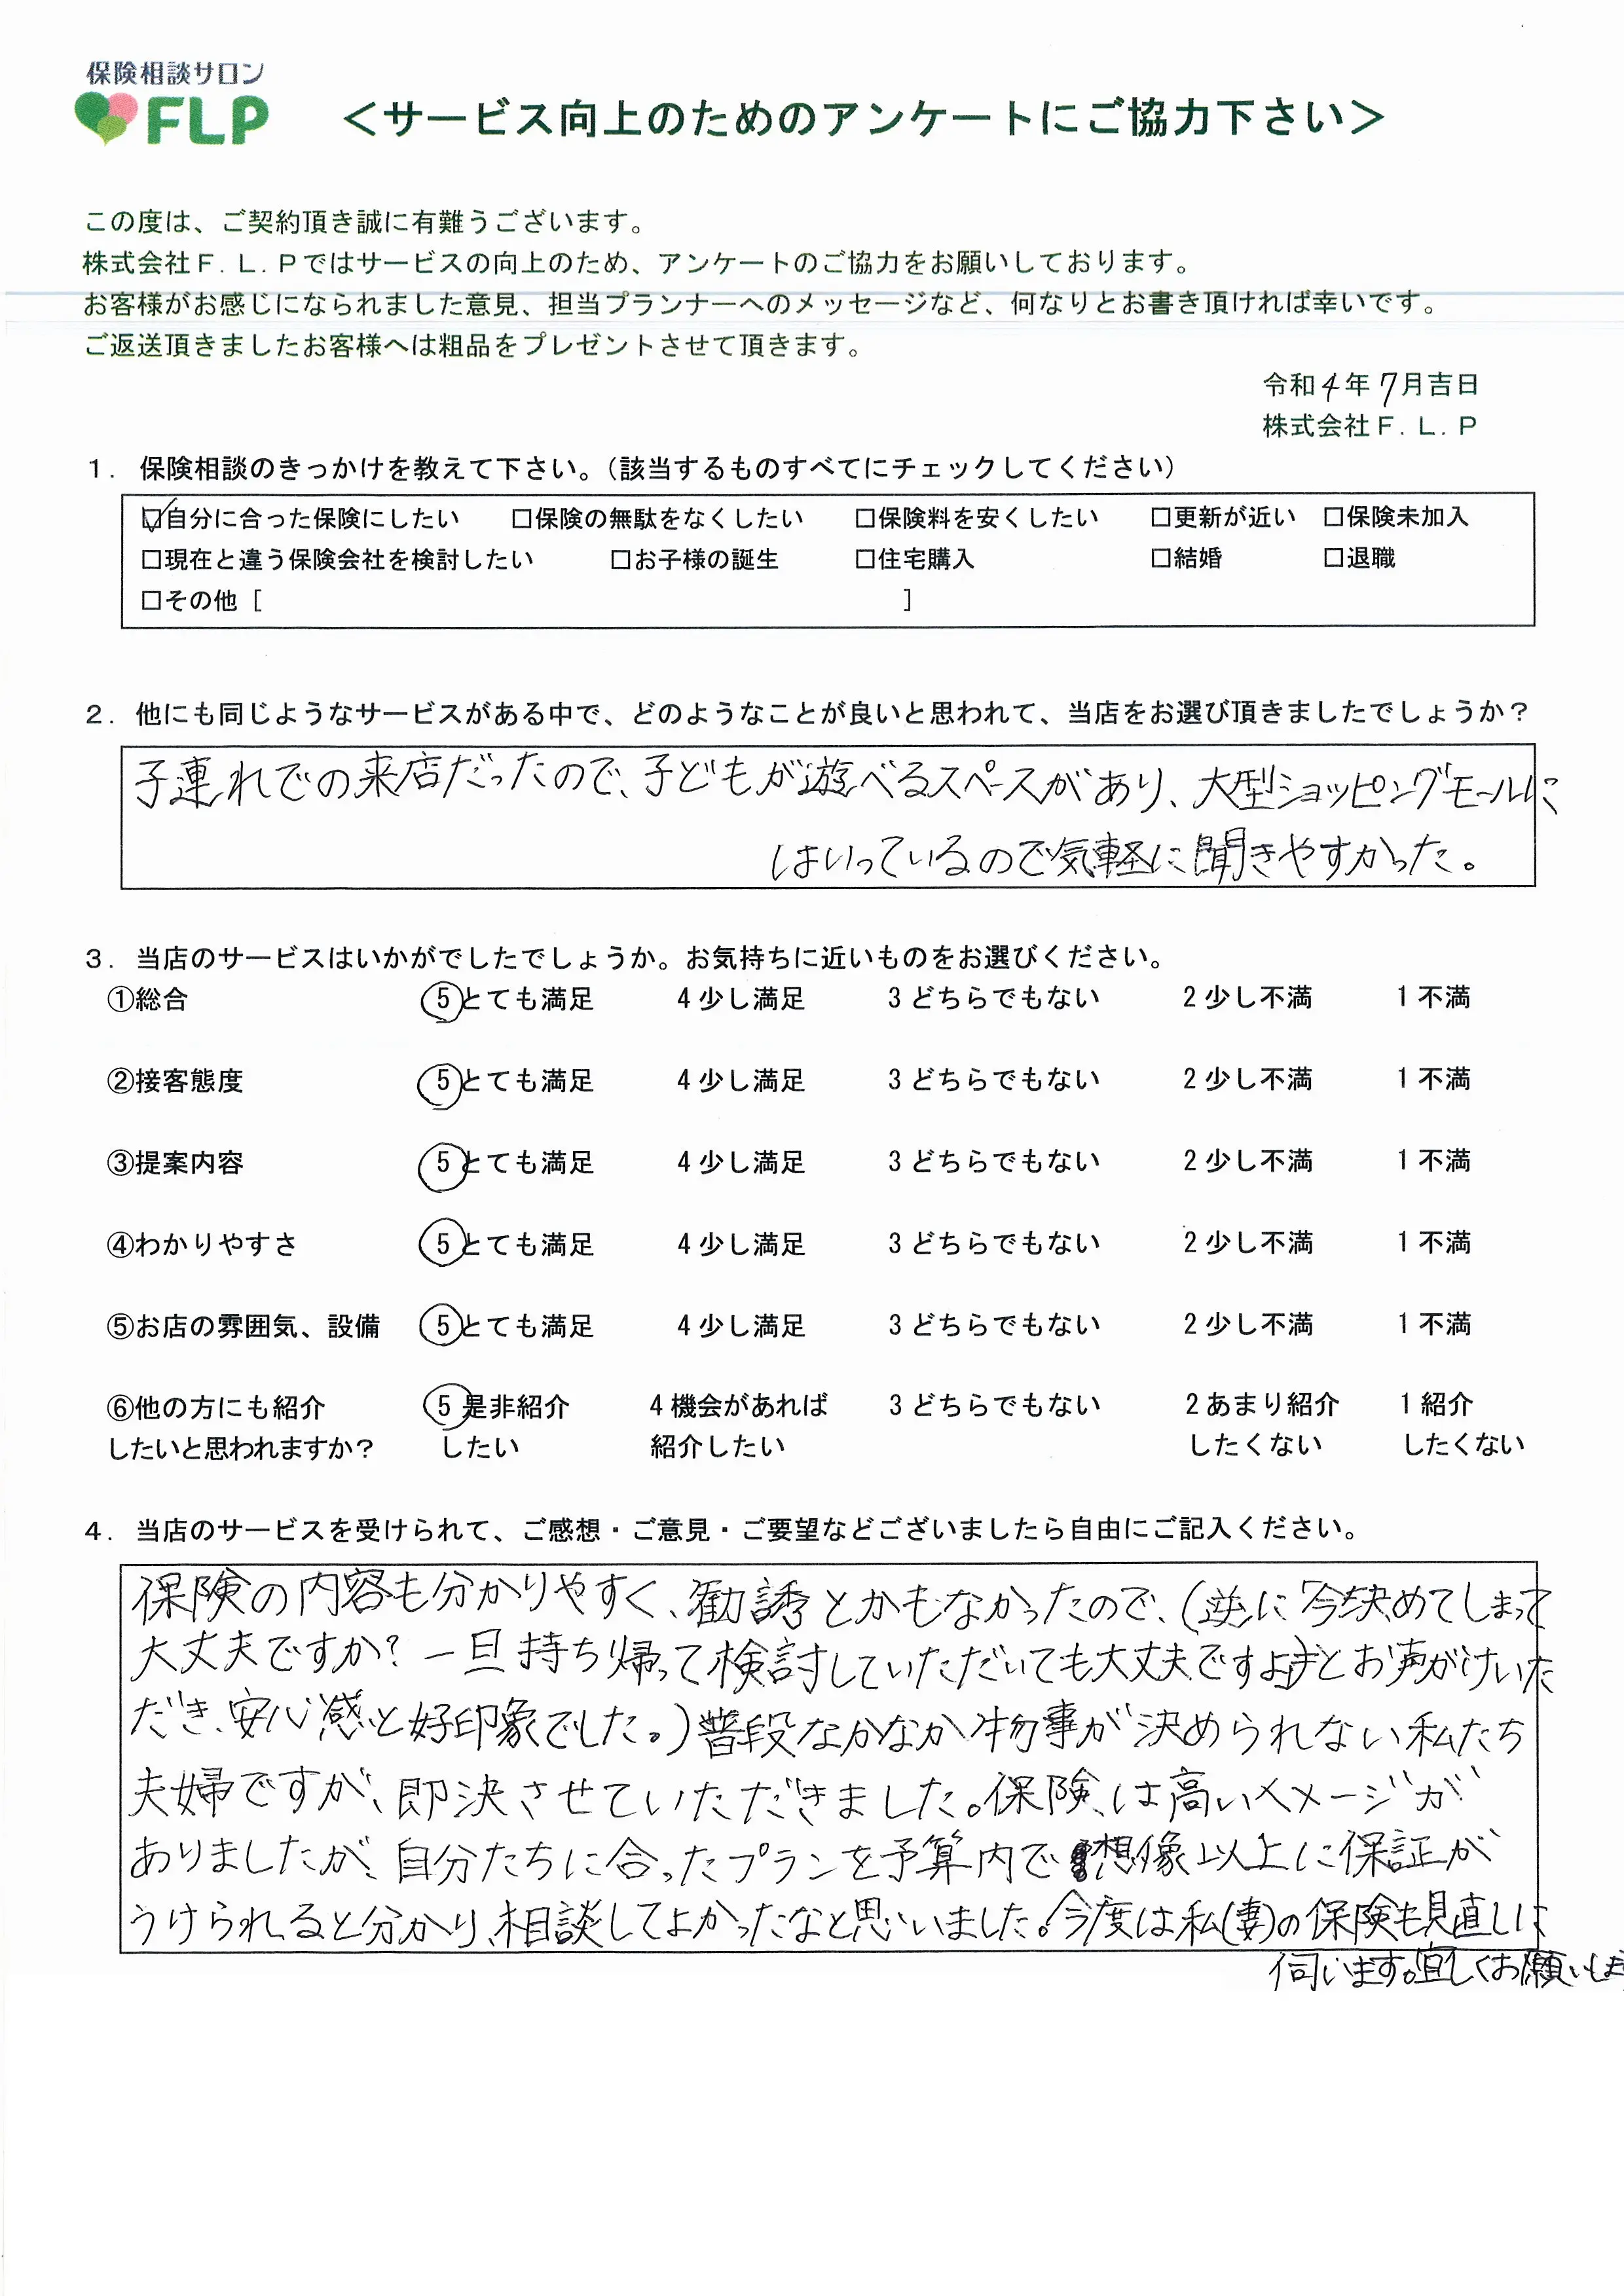 保険相談サロン
FLP
＜サービス向上のためのアンケートにご協力下さい＞
この度は、ご契約頂き誠に有難うございます。
株式会社Ｆ．Ｌ．Ｐではサービスの向上のため、アンケートのご協力をお願いしております。
お客様がお感じになられました意見、担当プランナーへのメッセージなど、何なりとお書き頂ければ幸いです。
ご返送頂きましたお客様へは粗品をプレゼントさせて頂きます。
令和4年7月吉日
株式会社Ｆ．Ｌ．Ｐ
１．保険相談のきっかけを教えて下さい。（該当するものすべてにチェックしてください）
☑自分に合った保険にしたい □保険の無駄をなくしたい □保険料を安くしたい □更新が近い □保険未加入
□現在と違う保険会社を検討したい □お子様の誕生 □住宅購入 □結婚 □退職
□その他［ ］
２．他にも同じようなサービスがある中で、どのようなことが良いと思われて、当店をお選び頂きましたでしょうか？
子連れでの来店だったので、子どもが遊べるスペースがあり、大型ショッピングモールに
はいっているので気軽に聞きやすかった。
３．当店のサービスはいかがでしたでしょうか。お気持ちに近いものをお選びください。
①総合 5 とても満足 4 少し満足 3 どちらでもない 2 少し不満 1 不満
②接客態度 5 とても満足 4 少し満足 3 どちらでもない 2 少し不満 1 不満
③提案内容 5 とても満足 4 少し満足 3 どちらでもない 2 少し不満 1 不満
④わかりやすさ 5 とても満足 4 少し満足 3 どちらでもない 2 少し不満 1 不満
⑤お店の雰囲気、設備 5 とても満足 4 少し満足 3 どちらでもない 2 少し不満 1 不満
⑥他の方にも紹介 5 是非紹介 4 機会があれば 3 どちらでもない 2 あまり紹介 1 紹介
したいと思われますか？ したい 紹介したい したくない したくない
４．当店のサービスを受けられて、ご感想・ご意見・ご要望などございましたら自由にご記入ください。
保険の内容も分かりやすく、勧誘とかもなかったので、(逆に「今決めてしまって
大丈夫ですか？一旦持ち帰って検討していただいても大丈夫ですよ」とお声がけいた
だき、安心感と好印象でした。)普段なかなか物事が決められない私たち
夫婦ですが、即決させていただきました。保険は高いイメージが
ありましたが、自分たちに合ったプランを予算内で想像以上に保証が
うけられると分かり、相談してよかったなと思いました。今度は私(妻)の保険も見直しに
伺います。宜しくお願いしま